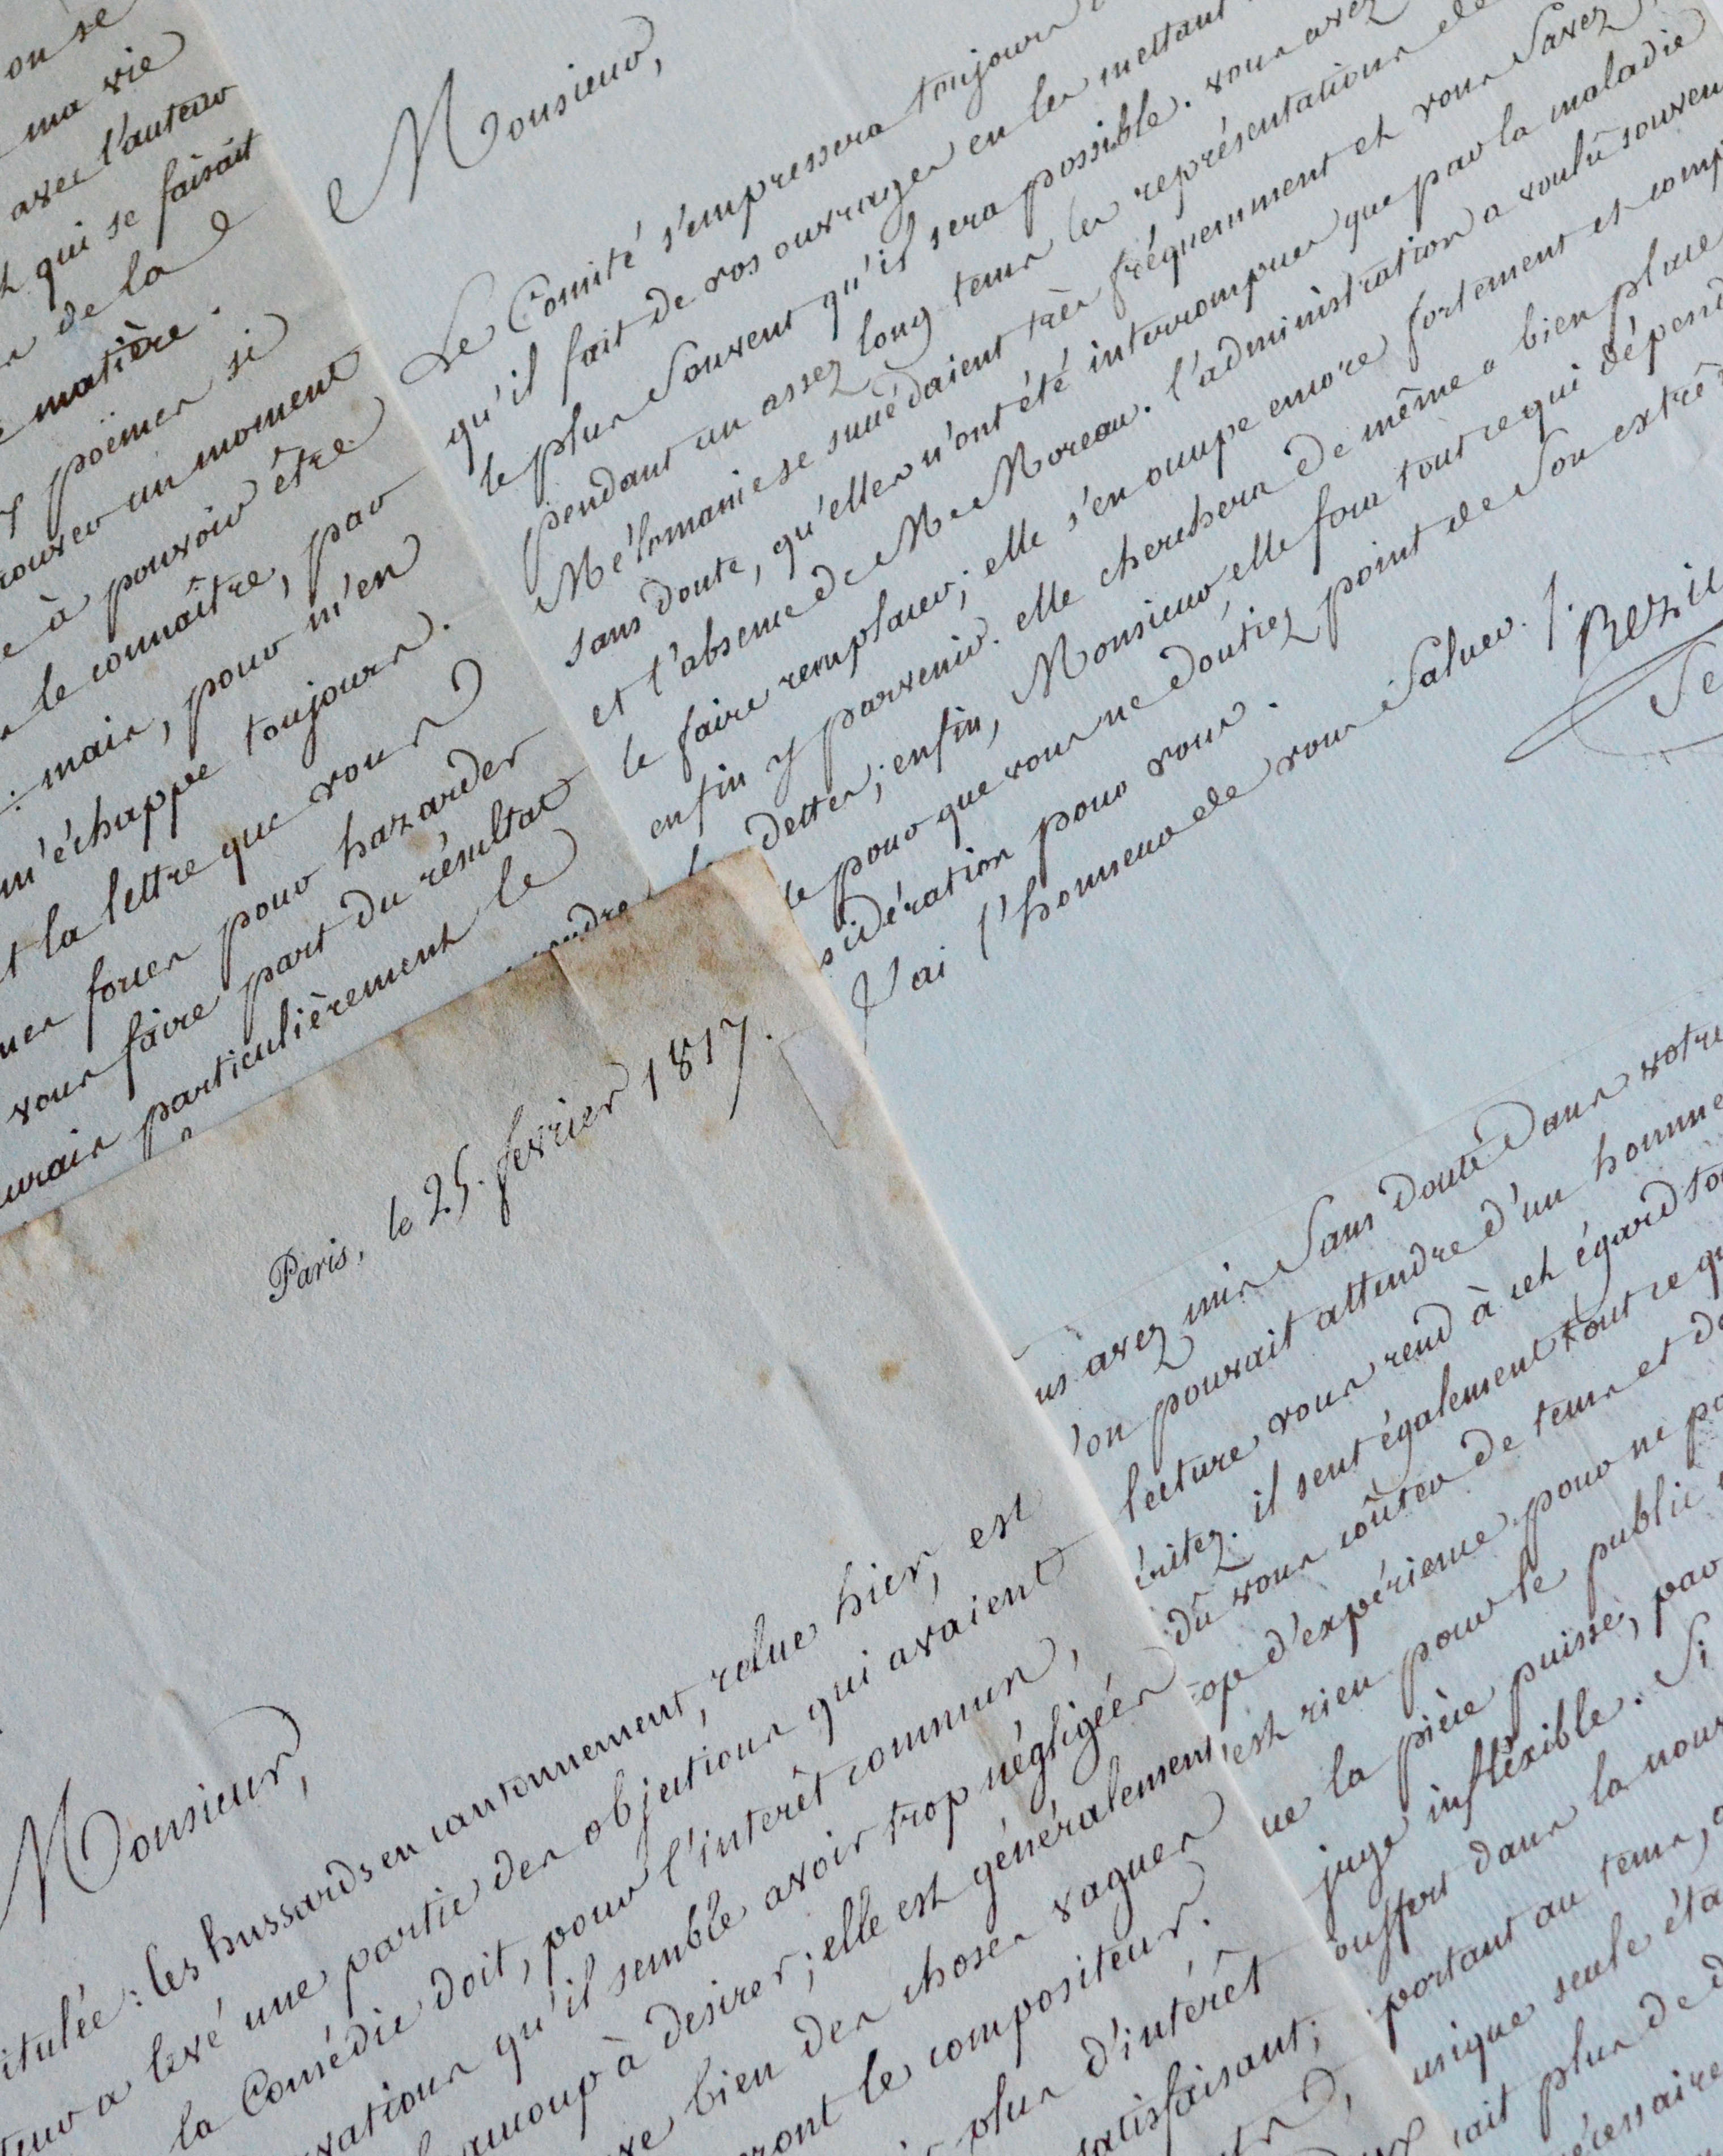 on se
ma vie
avec l'auteur
qui se faisait
de la
matière.
poëmes si
un moment
à pouvoir être
le connaître, par
: mais, pour m'en
m'échappe toujours.
la lettre que vous
forces pour hazarder
vous faire part du résultat
particulièrement le
Monsieur,
Le Comité s'empressera toujours
qu'il fait de vos ouvrages en les mettant
le plus souvent qu'il sera possible. vous avez
pendant un assez long tems les représentations de
Mélomanie se succédaient très fréquemment et vous savez,
sans doute, qu'elles n'ont été interrompues que par la maladie
et l'absence de M. Moreau. l'administration a voulû souvent
le faire remplacer; elle s'en occupe encore fortement et
enfin y parvenir. elle cherchera de même à bien
dettes; enfin, Monsieur, elle fera tout ce qui
pour que vous ne doutiez point de son
sidération pour vous.
J'ai l'honneur de vous saluer.
Paris, le 25. fevrier 1817.
Monsieur,
itulée: les hussards en cantonnement, relue hier, est
a levé une partie des objections qui avaient
la Comédie doit, pour l'interêt commun,
vations qu'il semble avoir trop négligées
à desirer; elle est généralement
bien des choses vagues
ront le compositeur.
plus d'intérêt
satisfaisant;
avez mis sans doute dans votre
'on pouvait attendre d'un homme
lecture vous rend à cet égard
éritez. il sent également tout ce
dû vous coûter de tems et
d'expérience pour ne
est rien pour le public
la pièce puisse, par
juge infléxible. Si
dans la
portant au tems,
usique seule
ait plus de
écessaire